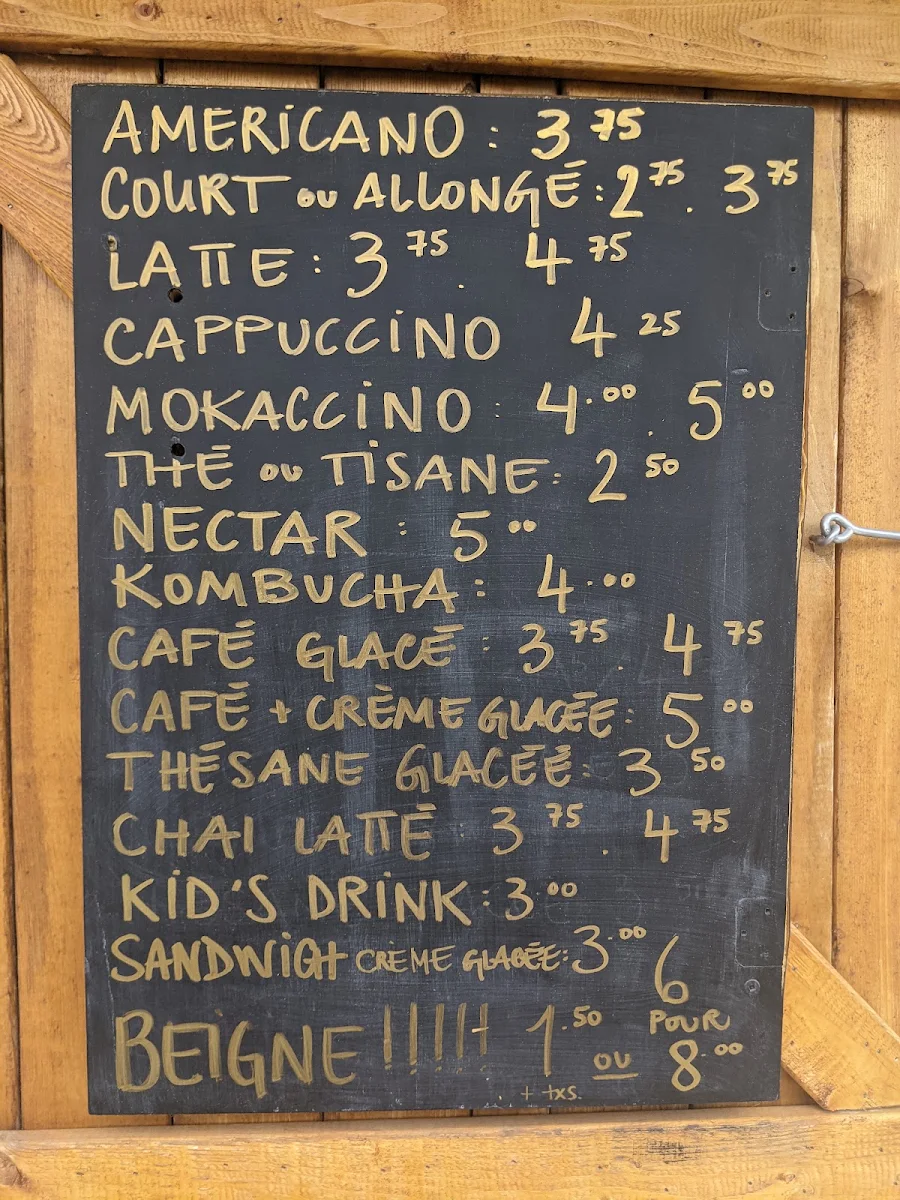 AMERICANO : 3 75
COURT ou ALLONGÉ : 2 75 . 3 75
LATTE : 3 75 . 4 75
CAPPUCCINO 4 25
MOKACCINO : 4.00 . 5 00
THÉ ou TISANE : 2 50
NECTAR : 5 00
KOMBUCHA : 4.00
CAFÉ GLACÉ : 3 75 . 4 75
CAFÉ + CRÈME GLACÉE : 5 00
THÉSANE GLACÉE : 3 50
CHAI LATTÉ 3 75 . 4 75
KID'S DRINK : 3.00
SANDWIGH CRÈME GLACÉE : 3.00
BEIGNE !!!!! 1.50 ou 6 POUR 8.00
+ txs.